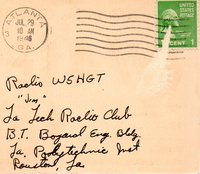 ATLANTA
3
JUL 29
10 AM
1946
GA.
UNITED STATES
POSTAGE
1 CENT 1
Radio W5HGT
"Jim"
La Tech Radio Club
B.T. Bogard Eng. Bldg
La. Polytechnic Inst
Rouston, La